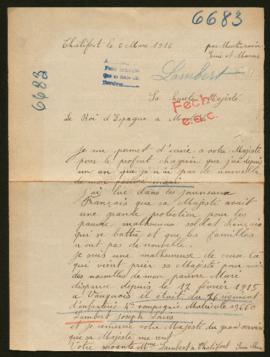 6683
Chalifert le 6 Mars 1916
par Montévrain
Seine et Marne
Lambert
6683
Sa haute Majesté
Fecho
e.a.c.
Le Roi d'Espagne a
Je me permet d'écrire a votre Majesté
pour le profont chagrin que j'ai depuis
un an que je n'ai pas de nouvelle
de mon pauvre mari
j'ai lue dans les journeaux
Français que sa Majesté avait
une grande protection pour les
pauvre malheureux soldat français
qui se battre et que les familles
n'ont pas de nouvelle.
Je suis une malheureuse de ceux la
qui vient prier sa Majesté pour avoir
des nouvelles de mon pauvre Mari
disparue depuis le 17 février 1915
a Vauquois et étant du 76 régiment
d'infanterie 6e compagnie Matricule
Lambert Joseph Louis
et je remercie votre Majesté du grand service
que sa Majesté me rend
Votre servante Mme Lambert a Chalifert Seine Marne